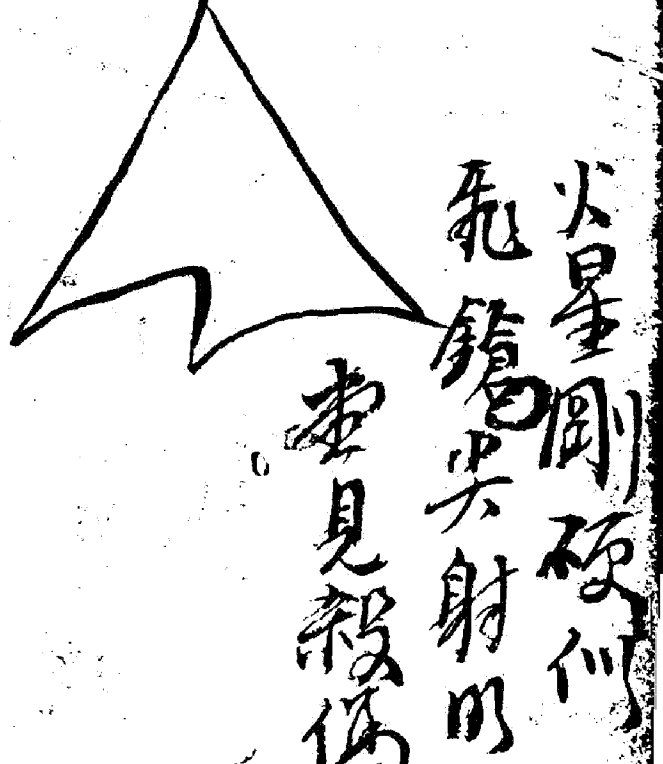 火星剛硬似
飛鎗尖射明
堂見殺傷